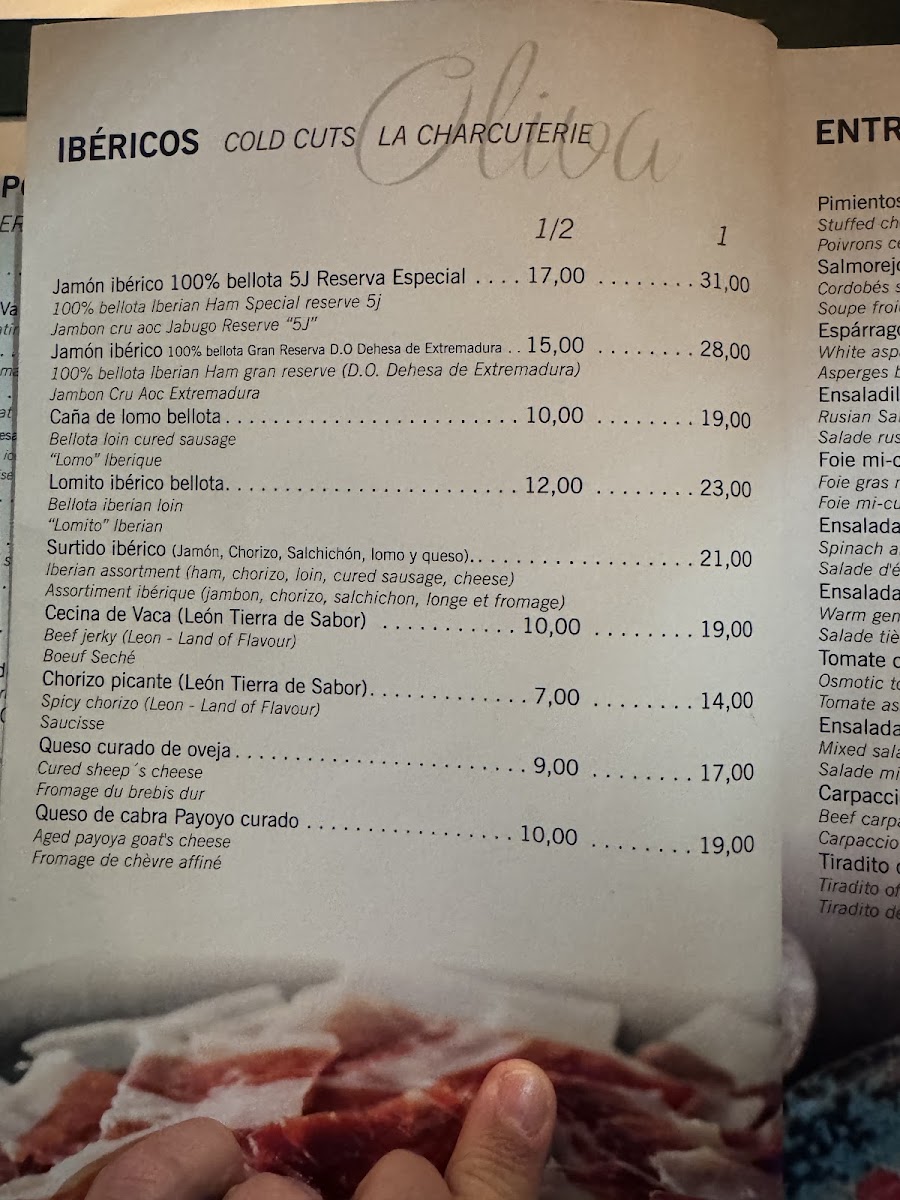 Oliva
IBÉRICOS COLD CUTS LA CHARCUTERIE
1/2 1
Jamón ibérico 100% bellota 5J Reserva Especial .... 17,00 ........ 31,00
100% bellota Iberian Ham Special reserve 5j
Jambon cru aoc Jabugo Reserve "5J"
Jamón ibérico 100% bellota Gran Reserva D.O Dehesa de Extremadura .. 15,00 ........ 28,00
100% bellota Iberian Ham gran reserve (D.O. Dehesa de Extremadura)
Jambon Cru Aoc Extremadura
Caña de lomo bellota........................ 10,00 ........ 19,00
Bellota loin cured sausage
"Lomo" Iberique
Lomito ibérico bellota........................ 12,00 ........ 23,00
Bellota iberian loin
"Lomito" Iberian
Surtido ibérico (Jamón, Chorizo, Salchichón, lomo y queso)..................... 21,00
Iberian assortment (ham, chorizo, loin, cured sausage, cheese)
Assortiment ibérique (jambon, chorizo, salchichon, longe et fromage)
Cecina de Vaca (León Tierra de Sabor) ........... 10,00 ........ 19,00
Beef jerky (Leon - Land of Flavour)
Boeuf Seché
Chorizo picante (León Tierra de Sabor)............. 7,00 ........ 14,00
Spicy chorizo (Leon - Land of Flavour)
Saucisse
Queso curado de oveja........................ 9,00 ........ 17,00
Cured sheep´s cheese
Fromage du brebis dur
Queso de cabra Payoyo curado ................. 10,00 ........ 19,00
Aged payoya goat's cheese
Fromage de chèvre affiné
ENTR
Pimientos
Stuffed ch
Poivrons c
Salmorej
Cordobés s
Soupe froi
Espárrag
White asp
Asperges b
Ensaladil
Rusian Sa
Salade rus
Foie mi-c
Foie gras
Foie mi-cu
Ensalada
Spinach a
Salade d'é
Ensalada
Warm gen
Salade tiè
Tomate
Osmotic to
Tomate as
Ensalada
Mixed sala
Salade mi
Carpacci
Beef carpa
Carpaccio
Tiradito
Tiradito of
Tiradito de